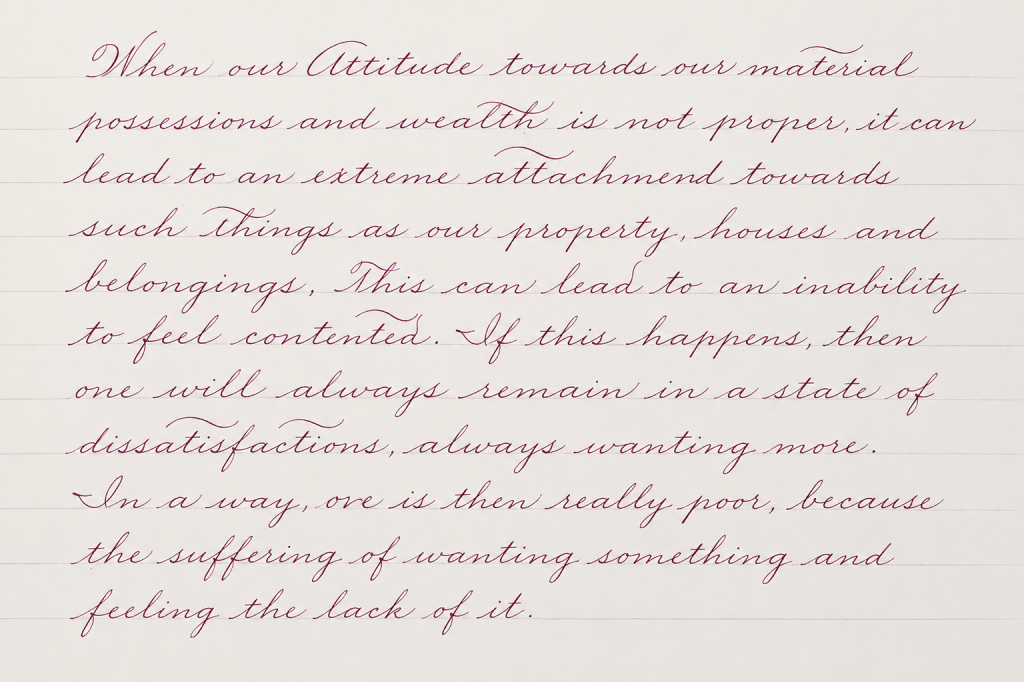 When our Attitude towards our material
possessions and wealth is not proper, it can
lead to an extreme attachmend towards
such things as our property, houses and
belongings, This can lead to an inability
to feel contented. If this happens, then
one will always remain in a state of
dissatisfactions, always wanting more.
In a way, ove is then really poor, because
the suffering of wanting something and
feeling the lack of it.